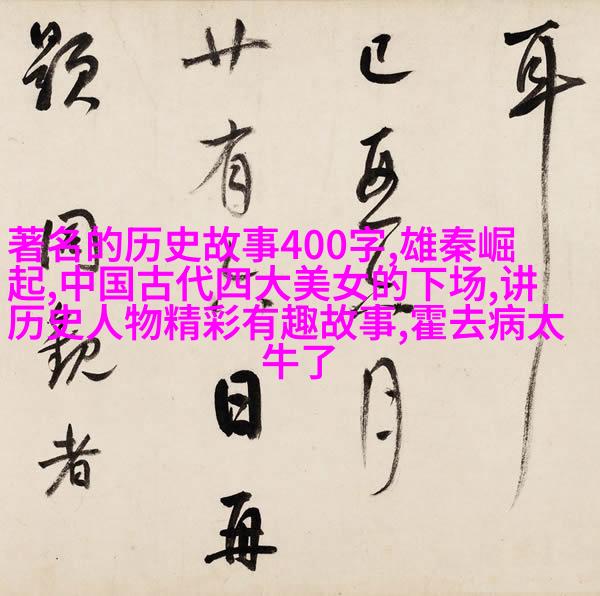 著名的历史故事400字,雄秦崛
起,中国古代四大美女的下场,讲
历史人物精彩有趣故事,霍去病太
牛了
耳
已月
廿有日再
題同觀者